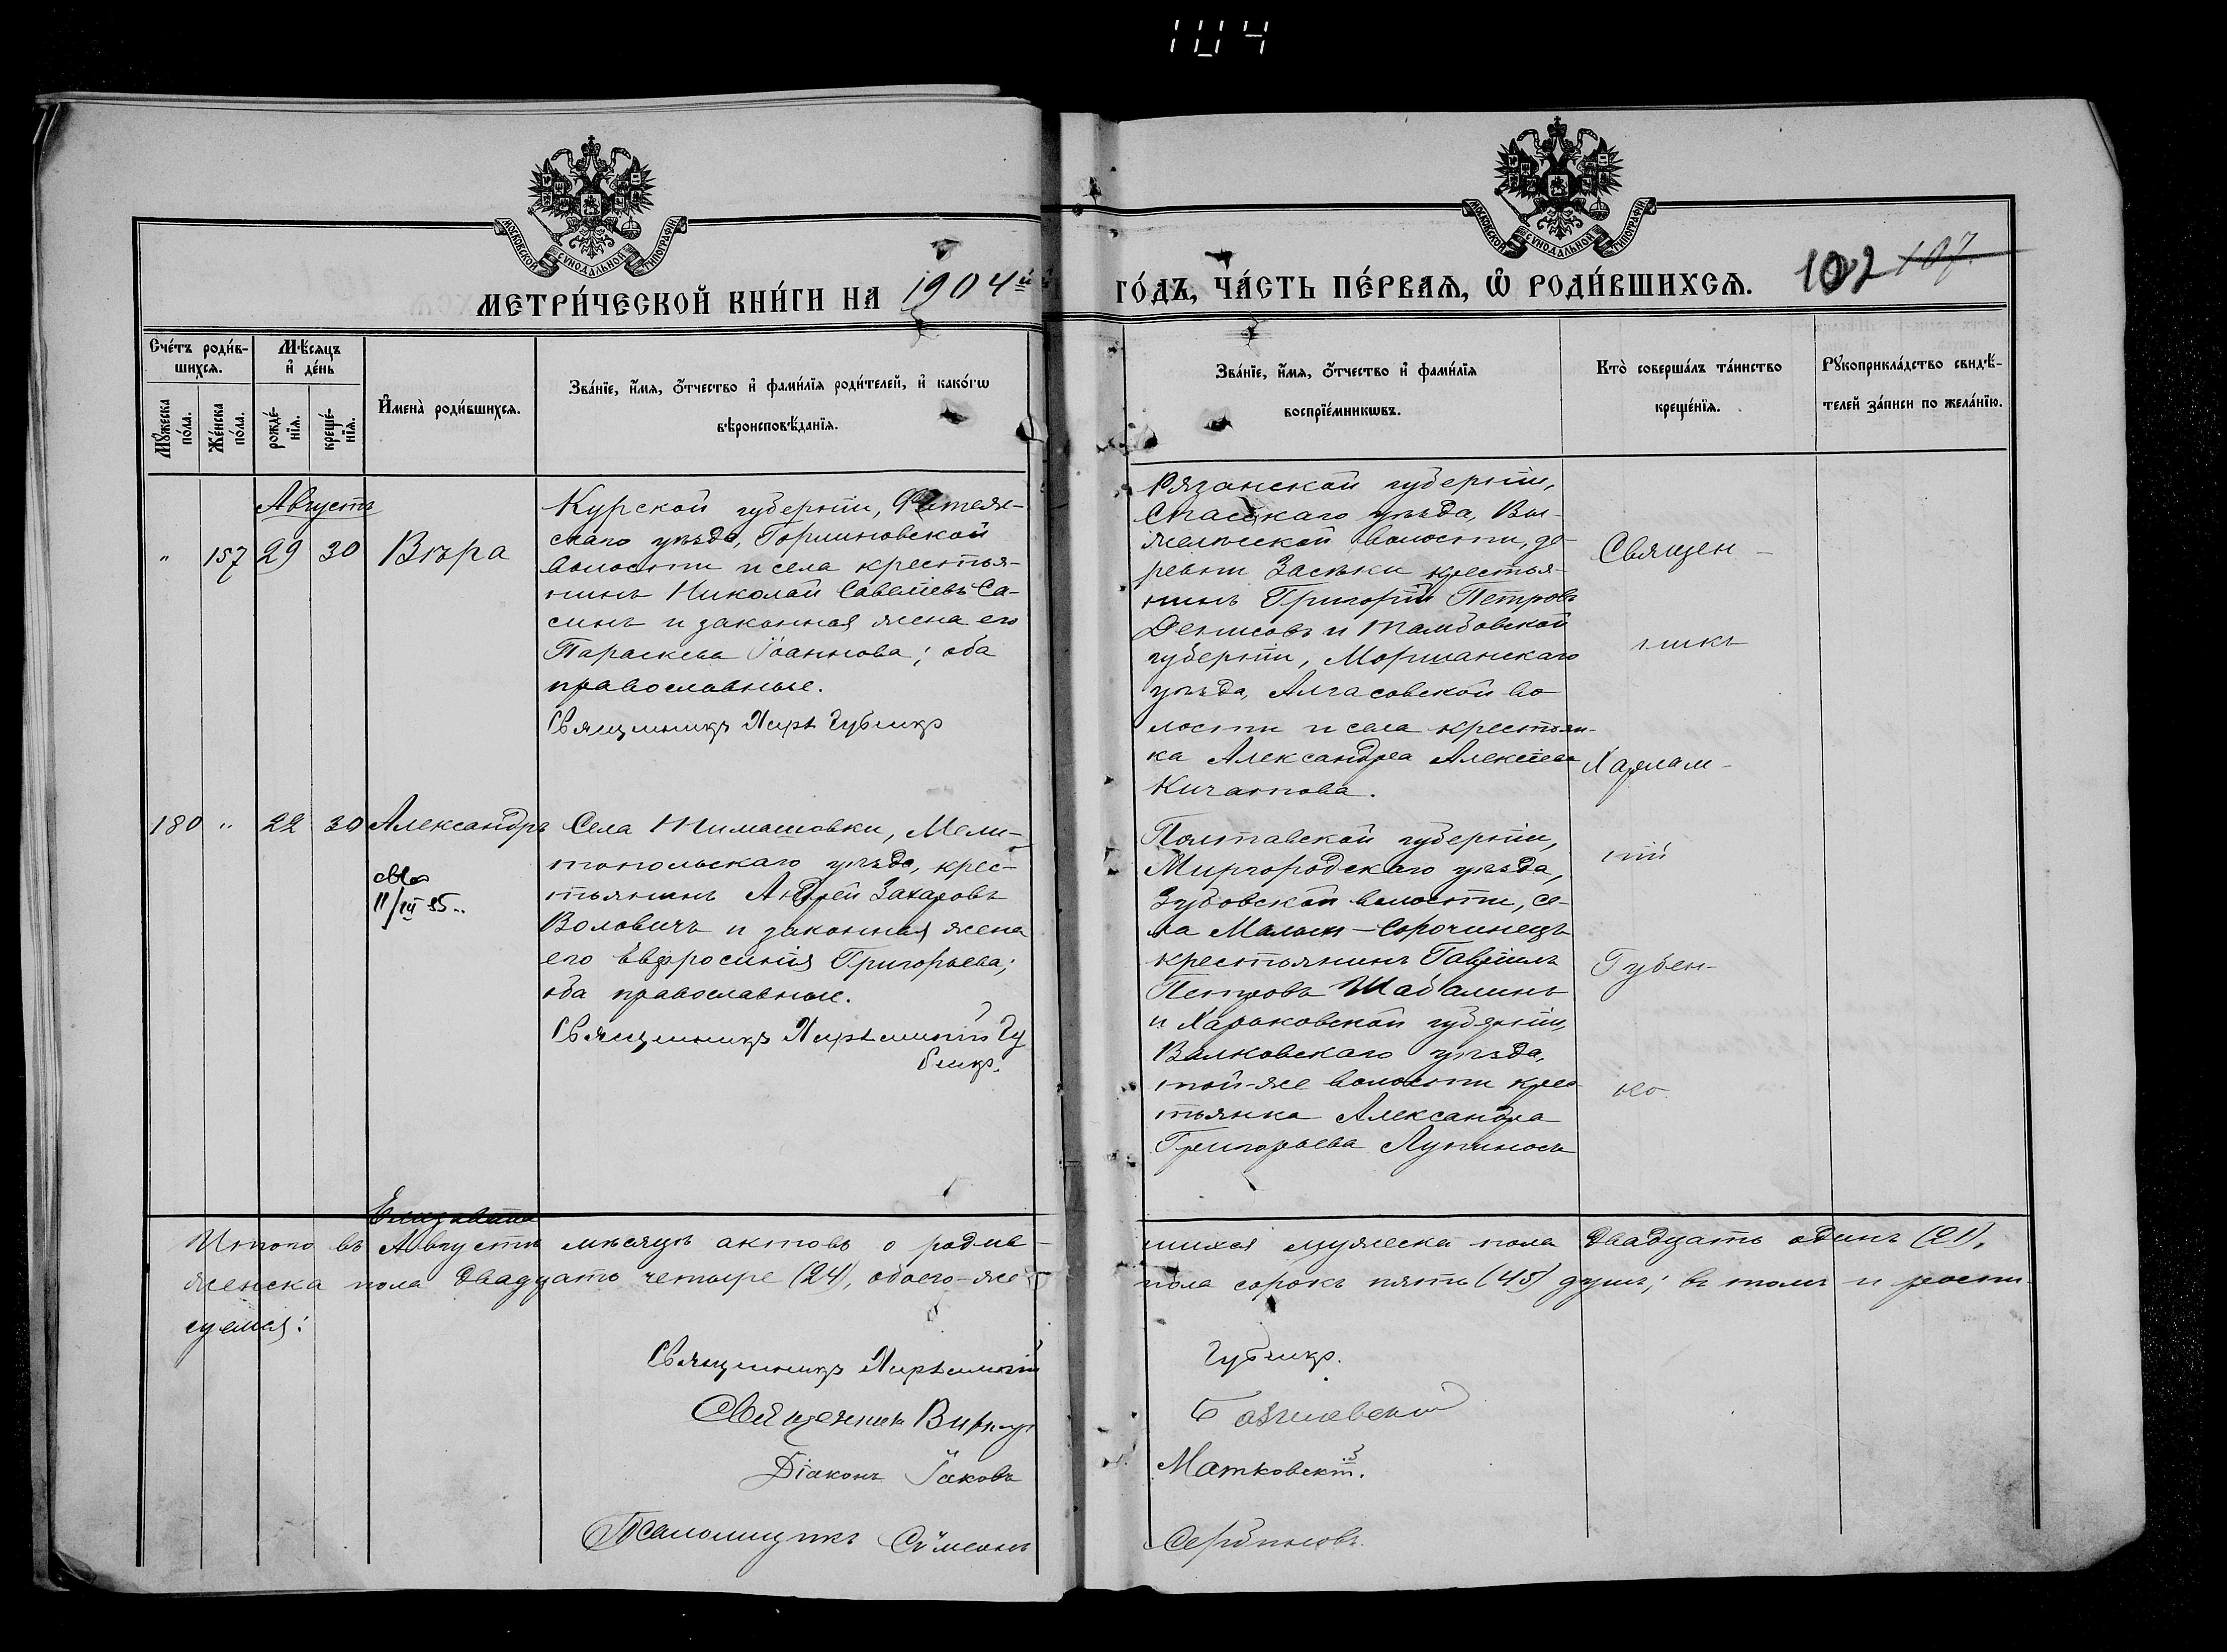 104
МОСКОВСКОЙ СѴНОДАЛЬНОЙ ТИПОГРАФІИ
МОСКОВСКОЙ СѴНОДАЛЬНОЙ ТИПОГРАФІИ
МЕТРИ́ЧЕСКОЙ КНИ́ГИ НА 1904 й
ГО́ДЪ, ЧА́СТЬ ПЕ́РВАѦ, Ѽ РОДИ́ВШИХСѦ. 102 107.
Сче́тъ роди́в-
шихсѧ.
Мѣ́сѧцъ
и҆ де́нь
Мꙋ́жеска
по́ла.
Же́нска
по́ла.
рожде́-
нїѧ.
креще́-
нїѧ.
И҆мена̀ роди́вшихсѧ.
Зва́нїе, и҆́мѧ, ѻ҆́тчество и҆ фами́лїѧ роди́телей, и҆ како́гѡ
вѣроисповѣ́данїѧ.
Зва́нїе, и҆́мѧ, ѻ҆́тчество и҆ фами́лїѧ
воспрїе́мникѡвъ.
Кто̀ соверша́лъ та́инство
креще́нїѧ.
Рꙋкоприкла́дство свидѣ́-
телей за́писи по жела́нїю.
Августъ
" 157 29 30 Вѣра
Курской губерніи, Фатеж-
скаго уѣзда,
волости и села крестья-
нинъ Николай Савельевъ Са-
синъ и законная жена его
Параскева Іоаннова; оба
православные.
Священникъ Харл. Губенко
Рязанской губерніи,
Спасскаго уѣзда, Вы-
жельской волости, де-
ревни Засѣки крестья-
нинъ Григорій Петровъ
Денисовъ и Тамбовской
губерніи, Моршанскаго
уѣзда, Алгасовской во-
лости и села крестьян-
ка Александра Алексѣева
Кичапова.
Священ-
никъ
Харлам-
пій
Губен-
ко.
180 " 22 30 Александръ
11/III 35..
Села Тимашовки, Мели-
топольскаго уѣзда, крес-
тьянинъ Андрей Захаровъ
Воловичъ и законная жена
его Евфросинія Григорьева;
оба православные.
Священникъ Харлампій Гу
бенко.
Полтавской губерніи,
Миргородскаго уѣзда,
Зубовской волости, се-
ла Малыхъ-Сорочинецъ
крестьянинъ Гавріилъ
Петровъ Шабалинъ
и Харьковской губерніи,
Валковскаго уѣзда,
той-же волости крес-
тьянка Александра
Григорьева Лупиносъ
Елизавета
Итого въ Августѣ мѣсяцѣ актовъ о родив-
шихся мужеска пола двадцать одинъ (21),
женска пола двадцать четыре (24), обоего-же
пола сорокъ пять (45) душъ; въ томъ и роспи-
суемся:
Священникъ Харлампій Губенко.
Священникъ
Діаконъ Іаковъ Матковскій.
Псаломщикъ Сѵмеонъ Сербиновъ.